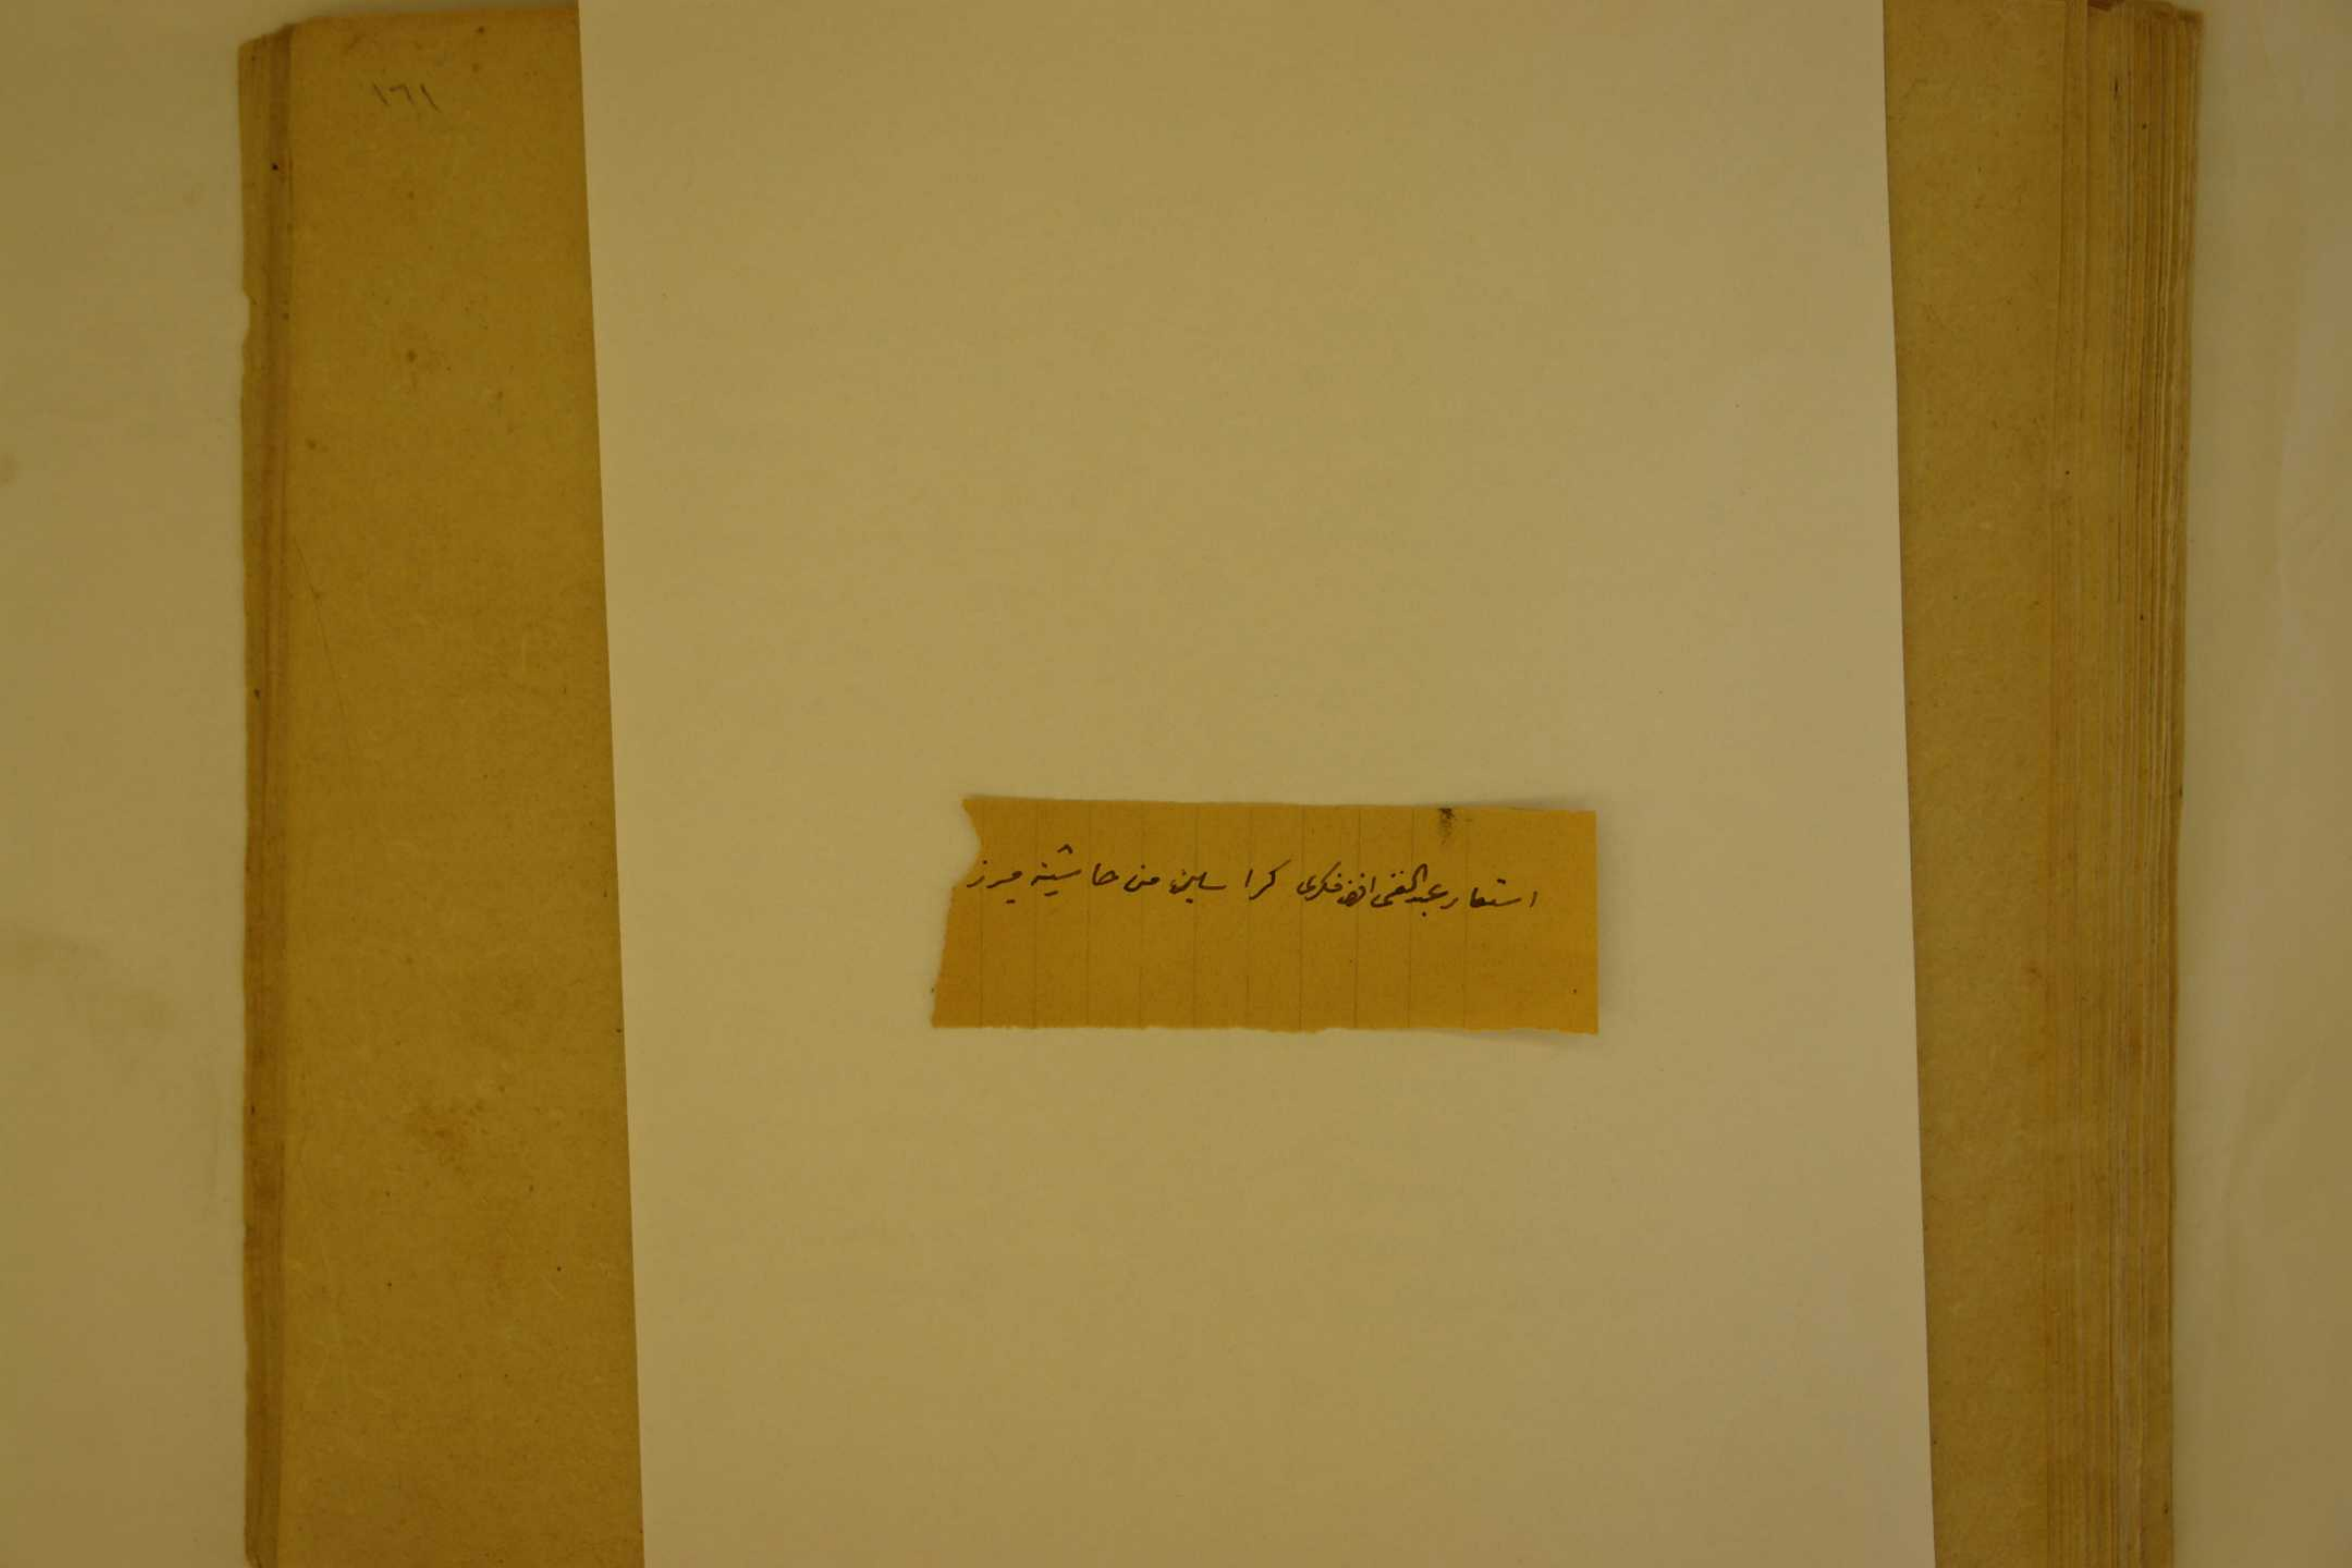 ١٦١
استعار عبد الغنى افندى فكرى كراسين من حاشية مرز